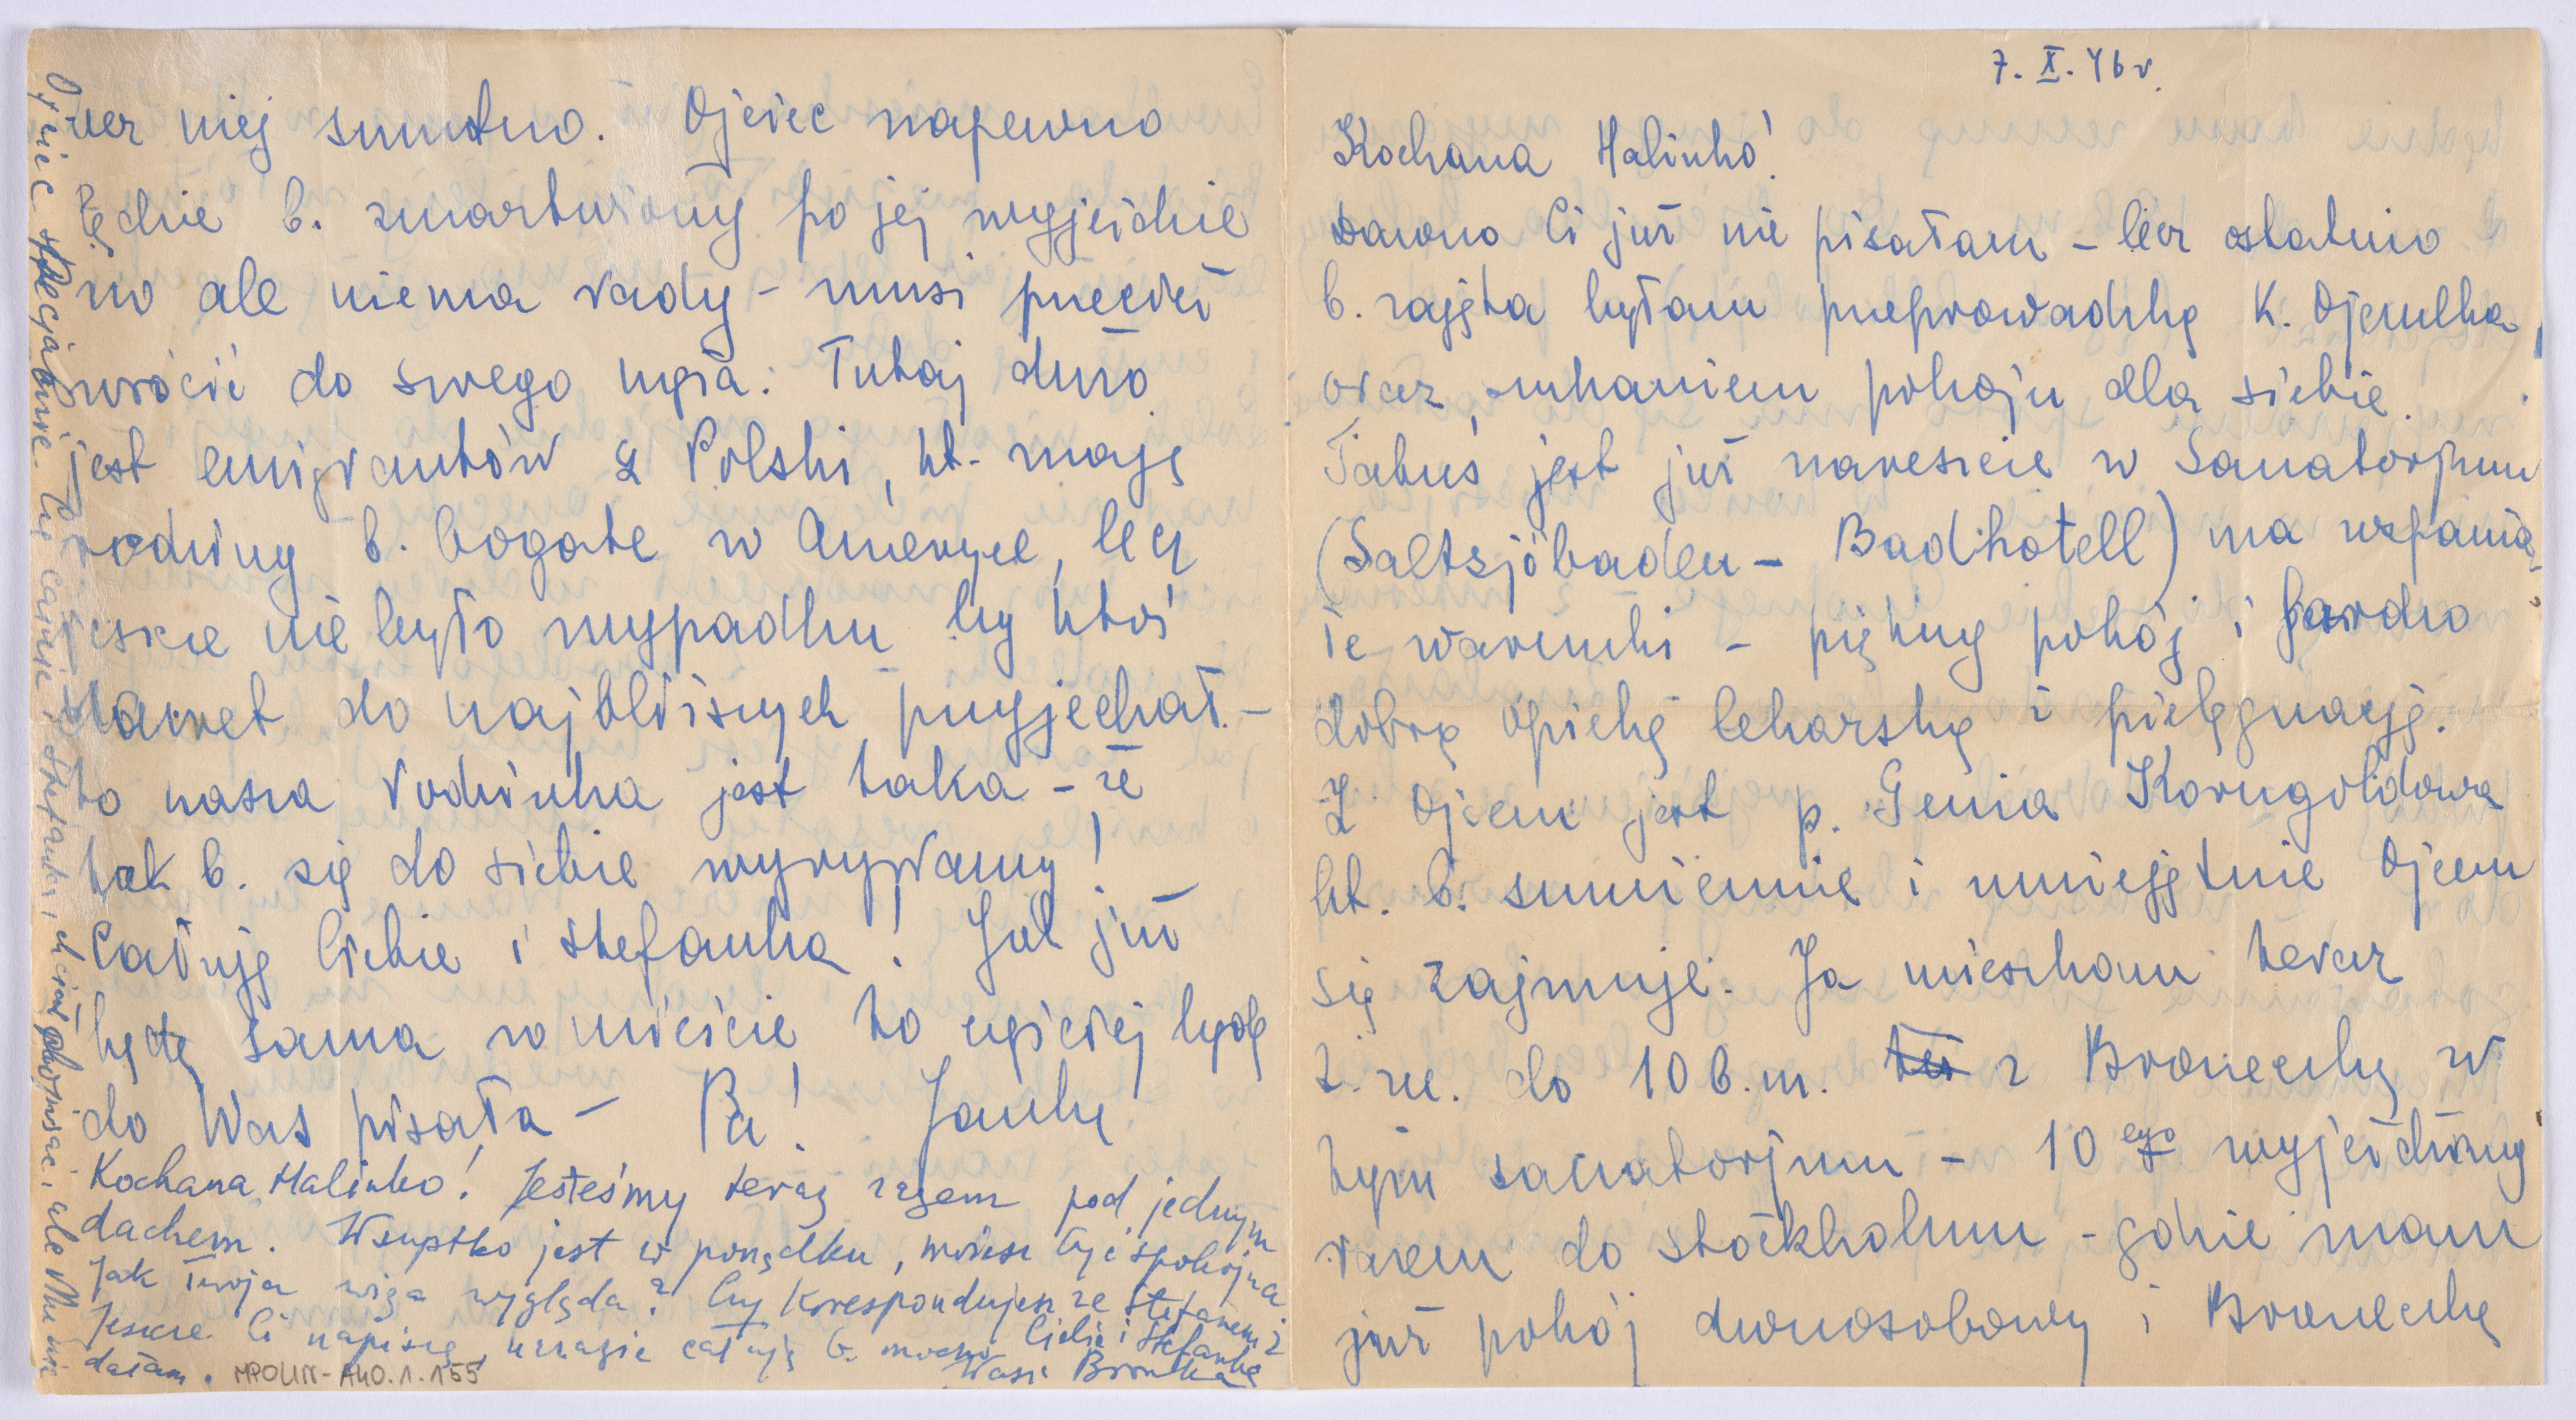 7. X. 46 r.
Kochana Halinko!
Dawno Ci już nie pisałam – lecz ostatnio
b. zajęta byłam przeprowadzką K. Ojczulka
oraz szukaniem pokoju dla siebie.
Tatuś jest już nareszcie w Sanatorjum
(Saltsjöbaden – Badhotell) ma wspania-
łe warunki – piękny pokój i bardzo
dobrą opiekę lekarską i pielęgnację.
Z Ojcem jest p. Genia Korngoldowa
kt. b. sumiennie i umiejętnie Ojcem
się zajmuje. Ja mieszkam teraz
t. zn. do 10 b.m. z Broneczką w
tym sanatorjum – 10ego wyjeżdżamy
razem do Stockholmu – gdzie mam
już pokój dwuosobowy i Broneczką
bez niej smutno. Ojciec napewno
będzie b. zmartwiony po jej wyjeździe
no ale niema rady – musi przecież
wrócić do swego męża. Tutaj dużo
jest emigrantów z Polski, kt. mają
rodziny b. bogate w Ameryce, lecz
jeszcze nie było wypadku by ktoś
nawet do najbliższych przyjechał –
to nasza rodzinka jest taka – że
tak b. się do siebie wyrywamy!
Całuję Ciebie i Stefanka! Jak już
będę sama w mieście to częściej będę
do Was pisała – Pa! Janka
Kochana Halinko! Jesteśmy teraz razem pod jednym
dachem. Wszystko jest w porządku, możesz być spokojna
Jak Twoja wiza wygląda? Czy korespondujesz ze Stefanem?
Jeszcze Ci napiszę, narazie całuję b. mocno Ciebie i Stefanka
Wasza Bronka
Ojciec specjalnie Cię całuje i Stefanka, chciał dopisać, ale Mu nie
dałam.
MPOLIN-A40.1.155